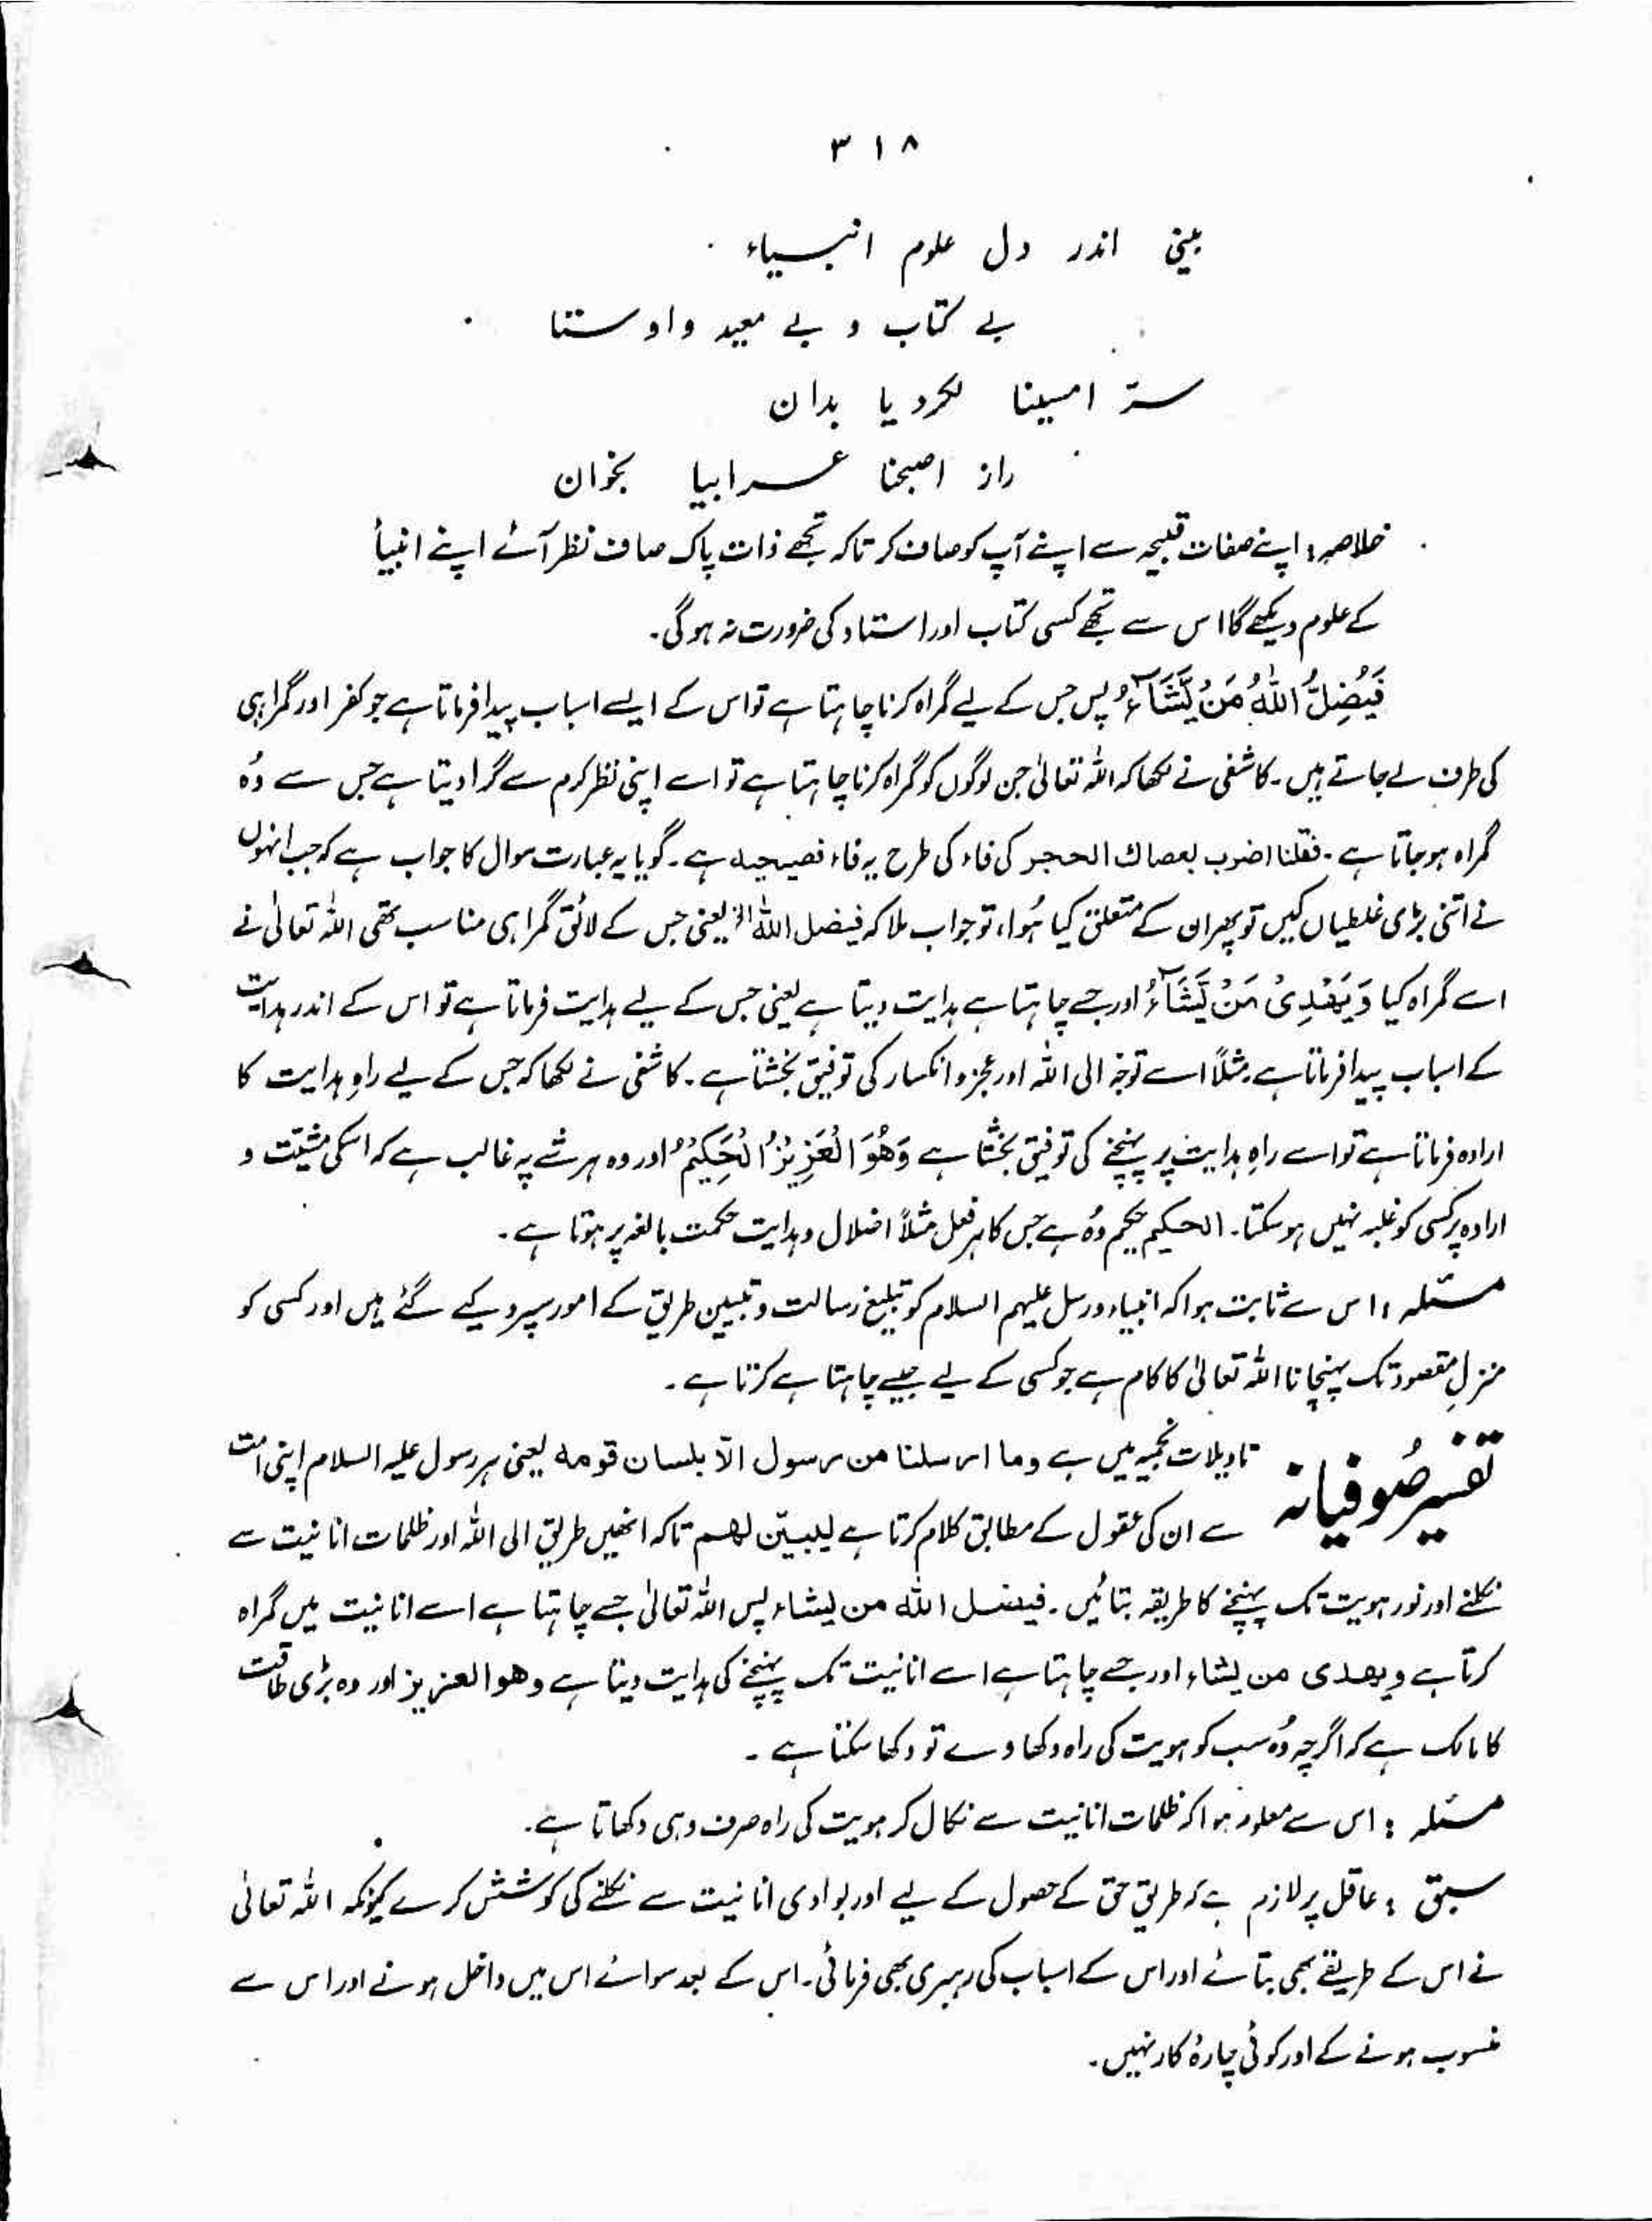 ۳۱۸
بینی اندر دل علوم انبیاء
بے کتاب و بے معید و اوستا
سرّ امسینا لکردیا بدان
راز اصبحنا عرابیا بخوان
خلاصہ : اپنے صفات قبیحہ سے اپنے آپ کو صاف کر تاکہ تجھے ذات پاک صاف نظر آئے اپنے انبیأ
کے علوم دیکھے گا اس سے تجھے کسی کتاب اور استاد کی ضرورت نہ ہوگی۔
فَیُضِلُّ اللّٰہُ مَنْ یَّشَآءُ پس جس کے لیے گمراہ کرنا چاہتا ہے تو اس کے ایسے اسباب پیدا فرماتا ہے جو کفر اور گمراہی
کی طرف لے جاتے ہیں۔ کاشفی نے لکھا کہ اللہ تعالیٰ جن لوگوں کو گمراہ کرنا چاہتا ہے تو اسے اپنی نظر کرم سے گرا دیتا ہے جس سے وُہ
گمراہ ہو جاتا ہے۔ فقلنا اضرب بعصاك الحجر کی فاء کی طرح یہ فاء فصیحیہ ہے۔ گویا یہ عبارت سوال کا جواب ہے کہ جب انہوں
نے اتنی بڑی غلطیاں کیں تو پھر ان کے متعلق کیا ہُوا، تو جواب ملا کہ فیضل اللہ الخ یعنی جس کے لائق گمراہی مناسب تھی اللہ تعالیٰ نے
اسے گمراہ کیا وَیَھْدِیْ مَنْ یَّشَآءُ اور جسے چاہتا ہے ہدایت دیتا ہے یعنی جس کے لیے ہدایت فرماتا ہے تو اس کے اندر ہدایت
کے اسباب پیدا فرماتا ہے مثلاً اسے توجہ الی اللہ اور عجز و انکسار کی توفیق بخشتا ہے۔ کاشفی نے لکھا کہ جس کے لیے راہِ ہدایت کا
ارادہ فرماتا ہے تو اسے راہِ ہدایت پر پہنچنے کی توفیق بخشتا ہے وَھُوَ الْعَزِیْزُ الْحَکِیْمُ اور وہ ہر شے پہ غالب ہے کہ اسکی مشیّت و
ارادہ پر کسی کو غلبہ نہیں ہو سکتا۔ الحکیم حکیم وُہ ہے جس کا ہر فعل مثلاً اضلال و ہدایت حکمت بالغہ پر ہوتا ہے۔
مسئلہ : اس سے ثابت ہوا کہ انبیاء و رسل علیہم السلام کو تبلیغ رسالت و تبیین طریق کے امور سپرد کیے گئے ہیں اور کسی کو
منزلِ مقصود تک پہنچانا اللہ تعالیٰ کا کام ہے جو کسی کے لیے جیسے چاہتا ہے کرتا ہے۔
تفسیر صُوفیانہ تاویلات نجمیہ میں ہے وما ارسلنا من رسول الّا بلسان قومہ یعنی ہر رسول علیہ السلام اپنی امت
سے ان کی عقول کے مطابق کلام کرتا ہے لیبیّن لھم تاکہ انھیں طریق الی اللہ اور ظلمات انانیت سے
نکلنے اور نور ہویت تک پہنچنے کا طریقہ بتائیں۔ فیضل اللہ من یشاء پس اللہ تعالیٰ جسے چاہتا ہے اسے انانیت میں گمراہ
کرتا ہے ویھدی من یشاء اور جسے چاہتا ہے اسے انانیت تک پہنچنے کی ہدایت دیتا ہے وھو العزیز اور وہ بڑی طاقت
کا مالک ہے کہ اگرچہ وُہ سب کو ہویت کی راہ دکھاوے تو دکھا سکتا ہے۔
مسئلہ : اس سے معلوم ہوا کہ ظلمات انانیت سے نکال کر ہویت کی راہ صرف وہی دکھاتا ہے۔
سبق : عاقل پر لازم ہے کہ طریق حق کے حصول کے لیے اور بوادی انانیت سے نکلنے کی کوشش کرے کیونکہ اللہ تعالیٰ
نے اس کے طریقے بھی بتائے اور اس کے اسباب کی رہبری بھی فرمائی۔ اس کے بعد سوائے اس میں داخل ہونے اور اس سے
منسوب ہونے کے اور کوئی چارۂ کار نہیں۔